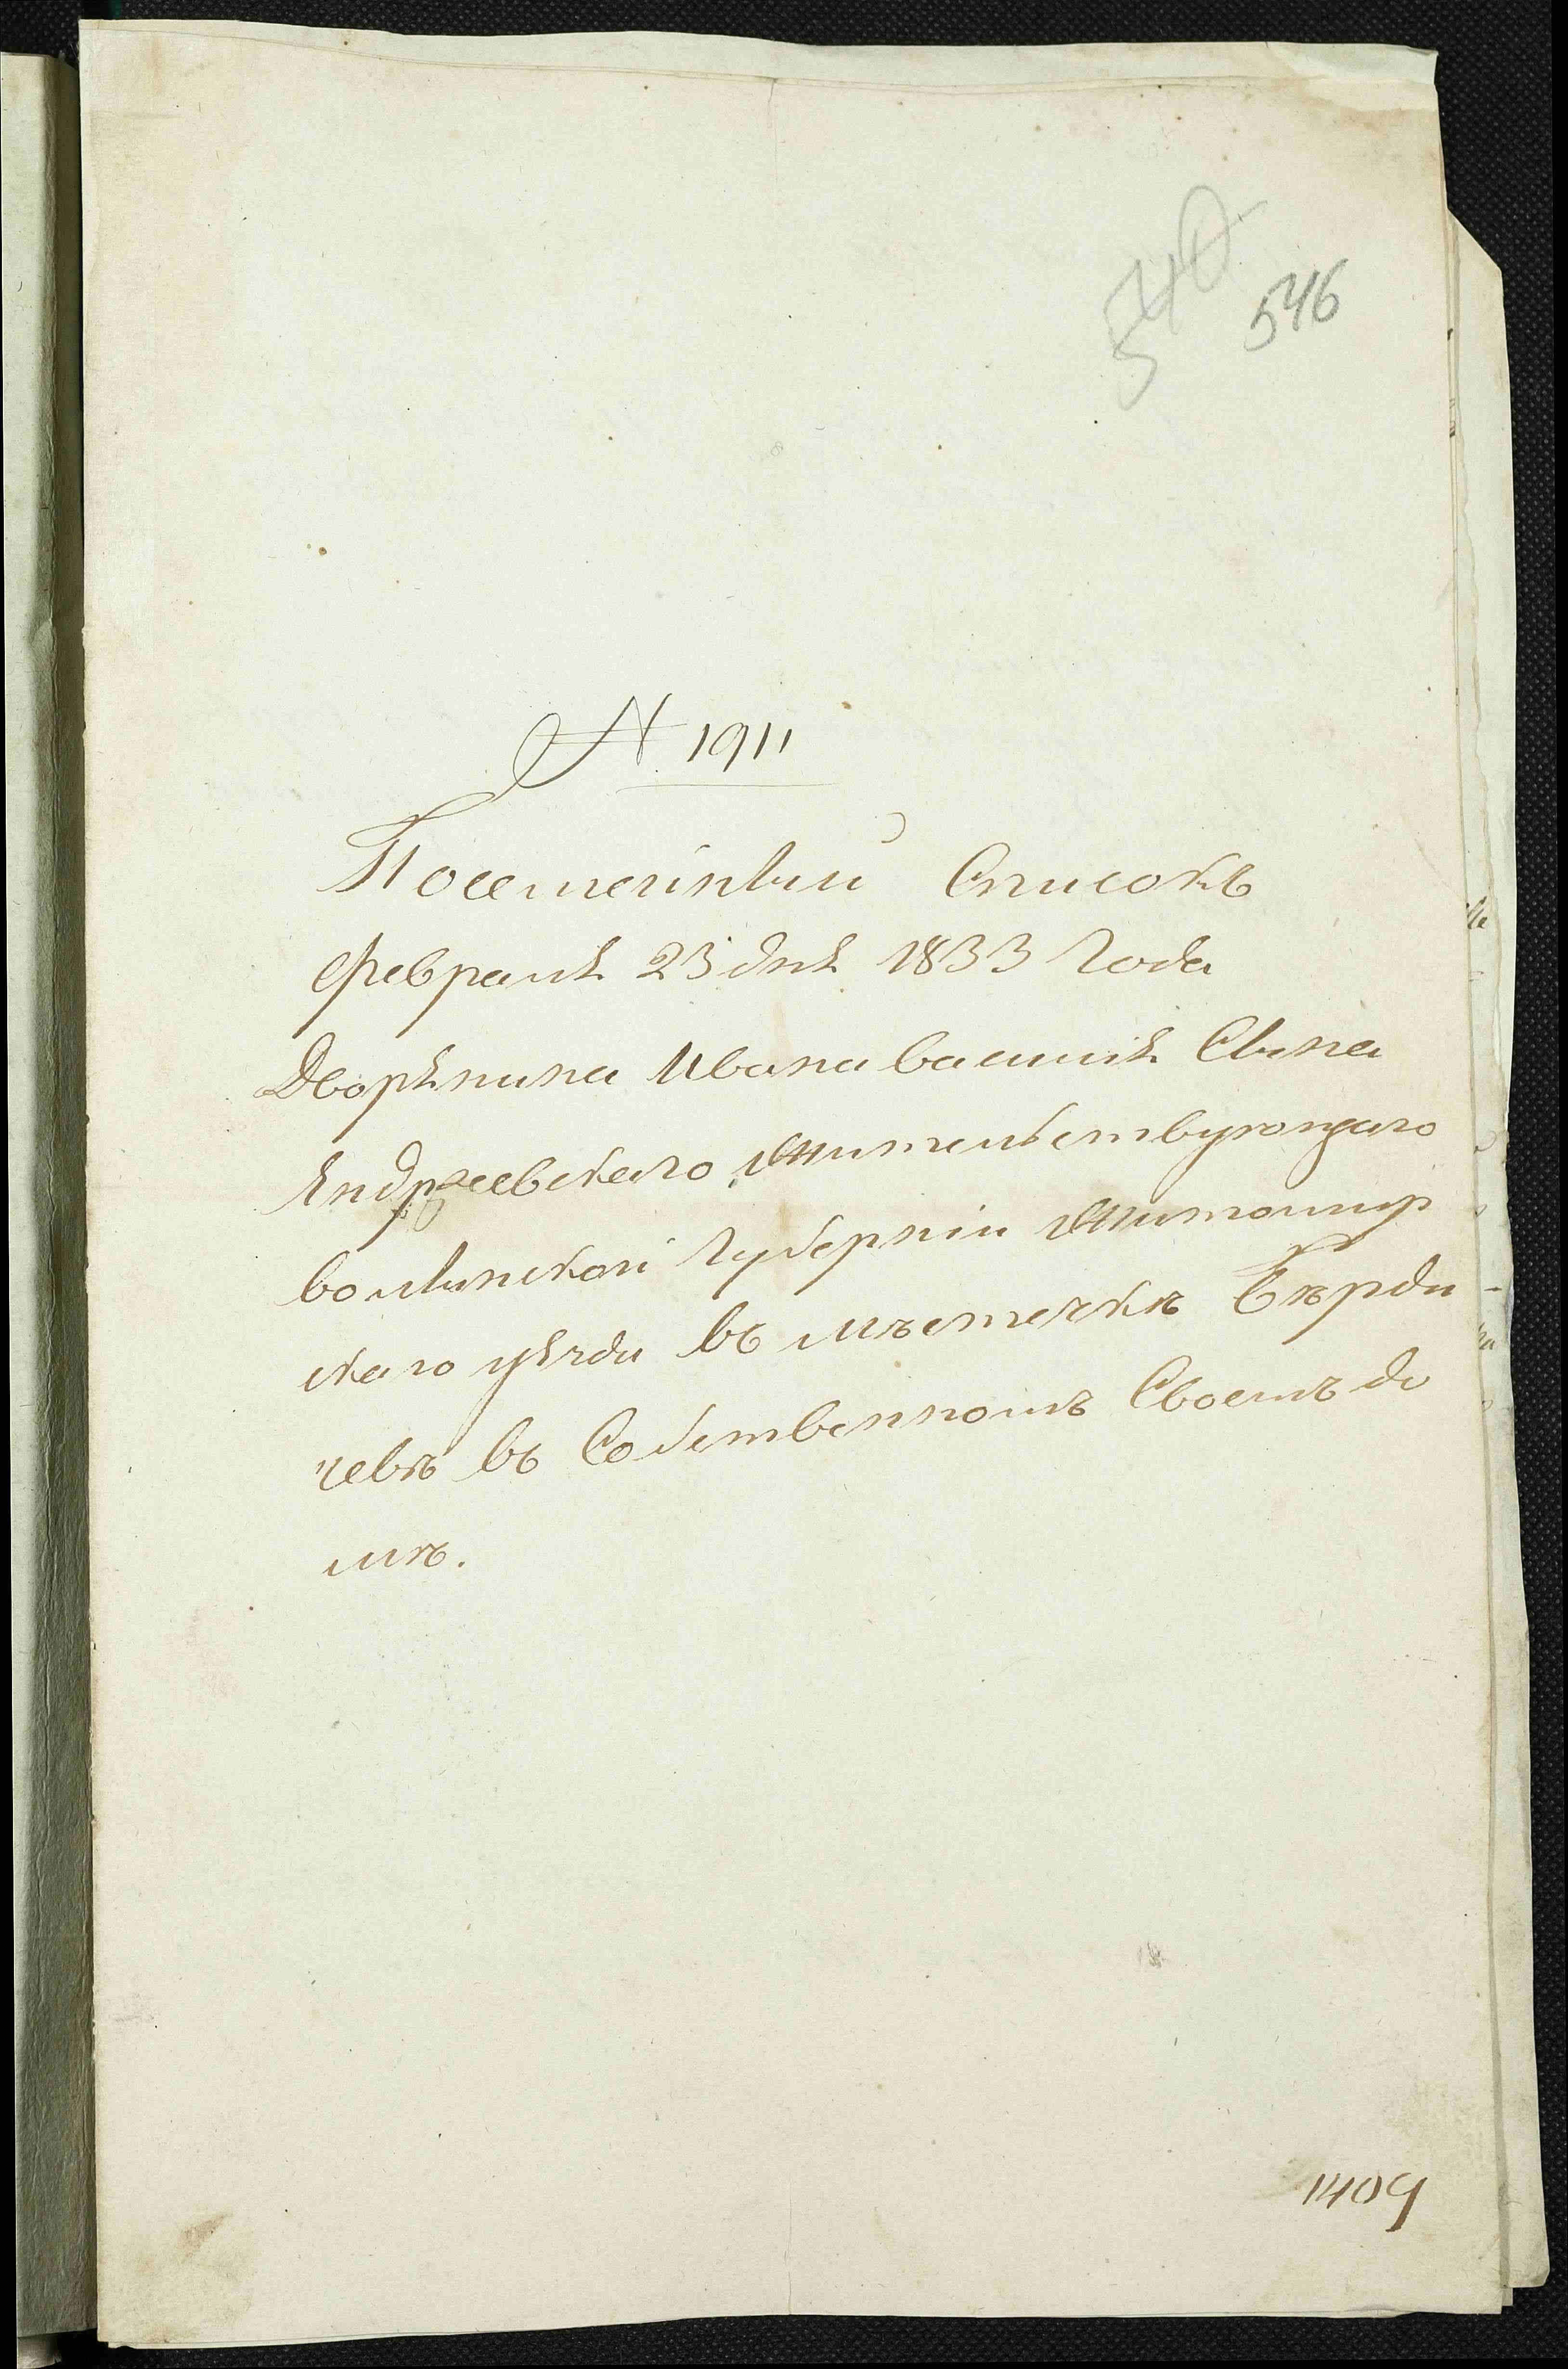 540
546
№ 1911
Посемейный Списокъ
февраля 23 дня 1833 Года
Дворянина Ивана василія Сына
Яндржеевскаго, жительствующаго
волынской Губерніи житомир
скаго уѣзда въ мѣстечкѣ Бѣрди-
чевѣ въ Собственномъ Своемъ до
мѣ.
1409